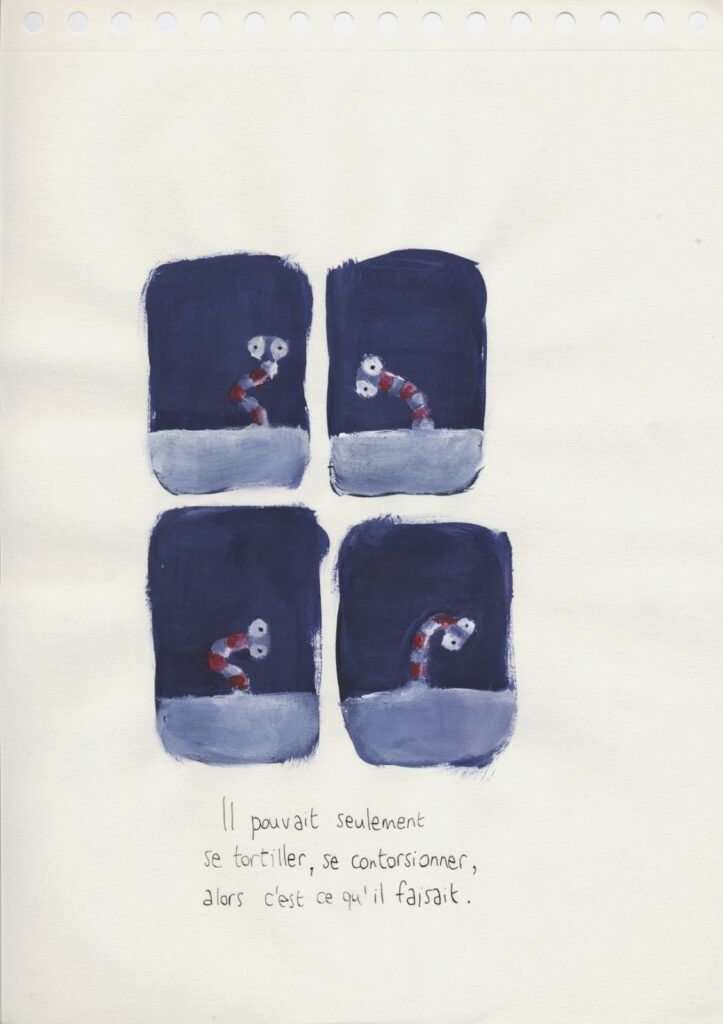 Il pouvait seulement
se tortiller, se contorsionner,
alors c'est ce qu'il faisait.